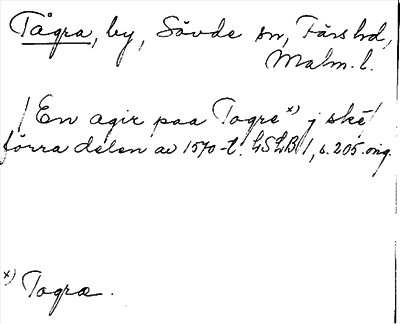 Tågra, by, Sövde sn, Färs hd,
Malm. l.
/ En agir paa Togre x) j ske /
förra delen av 1570-t. LSLB 1, s. 205. orig.
x) Togræ.